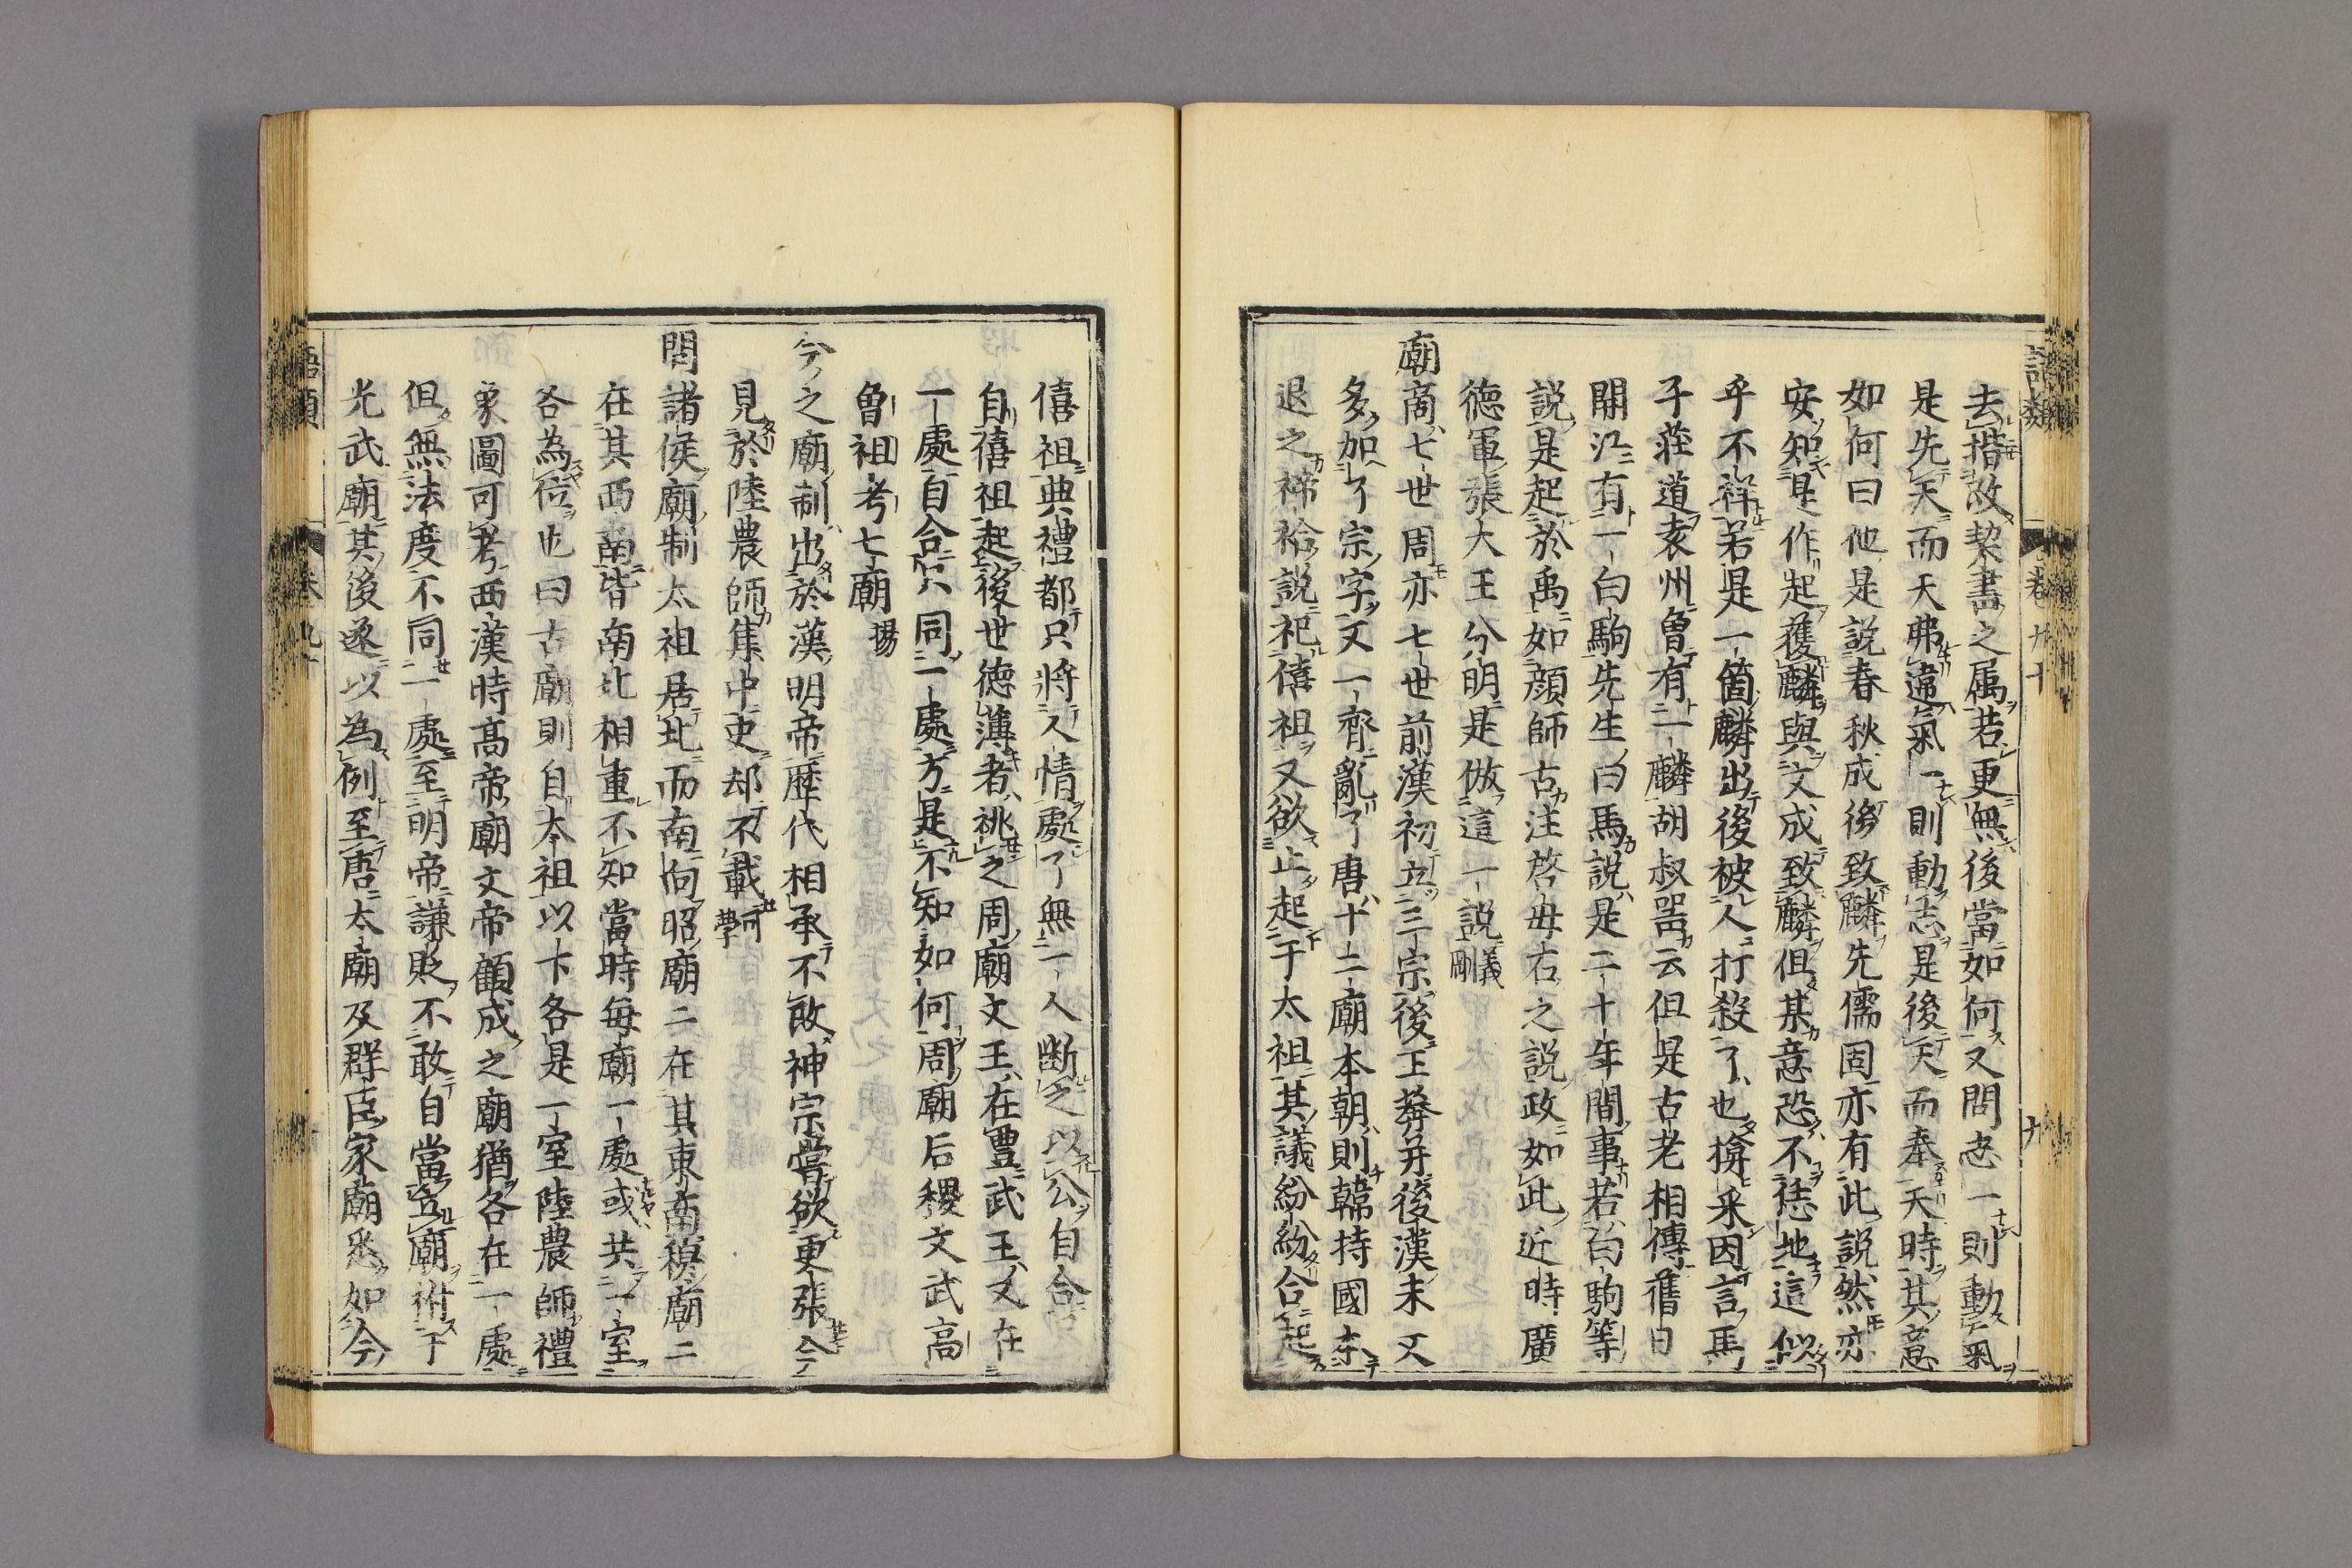 語類
卷九十
九
去揩改契書之属若更無後當如何又問志一則動氣
是先天而天弗違氣一則動志是後天而奉天時其意
如何曰他是説春秋成後致麟先儒固亦有此説然亦
安知是作起獲麟與文成致麟但某意恐不恁地這似
乎不祥若是一箇麟出後被人打殺了也揜采因言馬
子莊道袁州曾有一麟胡叔噐云但是古老相傳舊日
開江有一白駒先生曰馬説是二十年間事若白駒等
説是起於禹如顔師古注啓母石之説政如此近時廣
德軍張大王分明是倣這一説義剛
廟商七世周亦七世前漢初立三宗後王莽并後漢末又
多加了宗字又一齊亂了唐十二廟本朝則韓持國本
退之禘祫説祀僖祖又欲止起于太祖其議紛紛合起
僖祖典禮都只將人情處了無一人断之以公自合
自僖祖起後世德薄者祧之周廟文王在豊武王又在
一處自合只同一處方是不知如何周廟后稷文武高
曽祖考七廟揚
今之廟制出於漢明帝歴代相承不改神宗嘗欲更張今
見於陸農師集中史却不載可學
問諸侯廟制太祖居北而南向昭廟二在其東南穆廟二
在其西南皆南北相重不知當時每廟一處或共一室
各為位也曰古廟則自太祖以下各是一室陸農師禮
象圖可考西漢時高帝廟文帝顧成之廟猶各在一處
但無法度不同一處至明帝謙貶不敢自當立廟祔于
光武廟其後遂以為例至唐太廟及群臣家廟悉如今
語類
卷九十